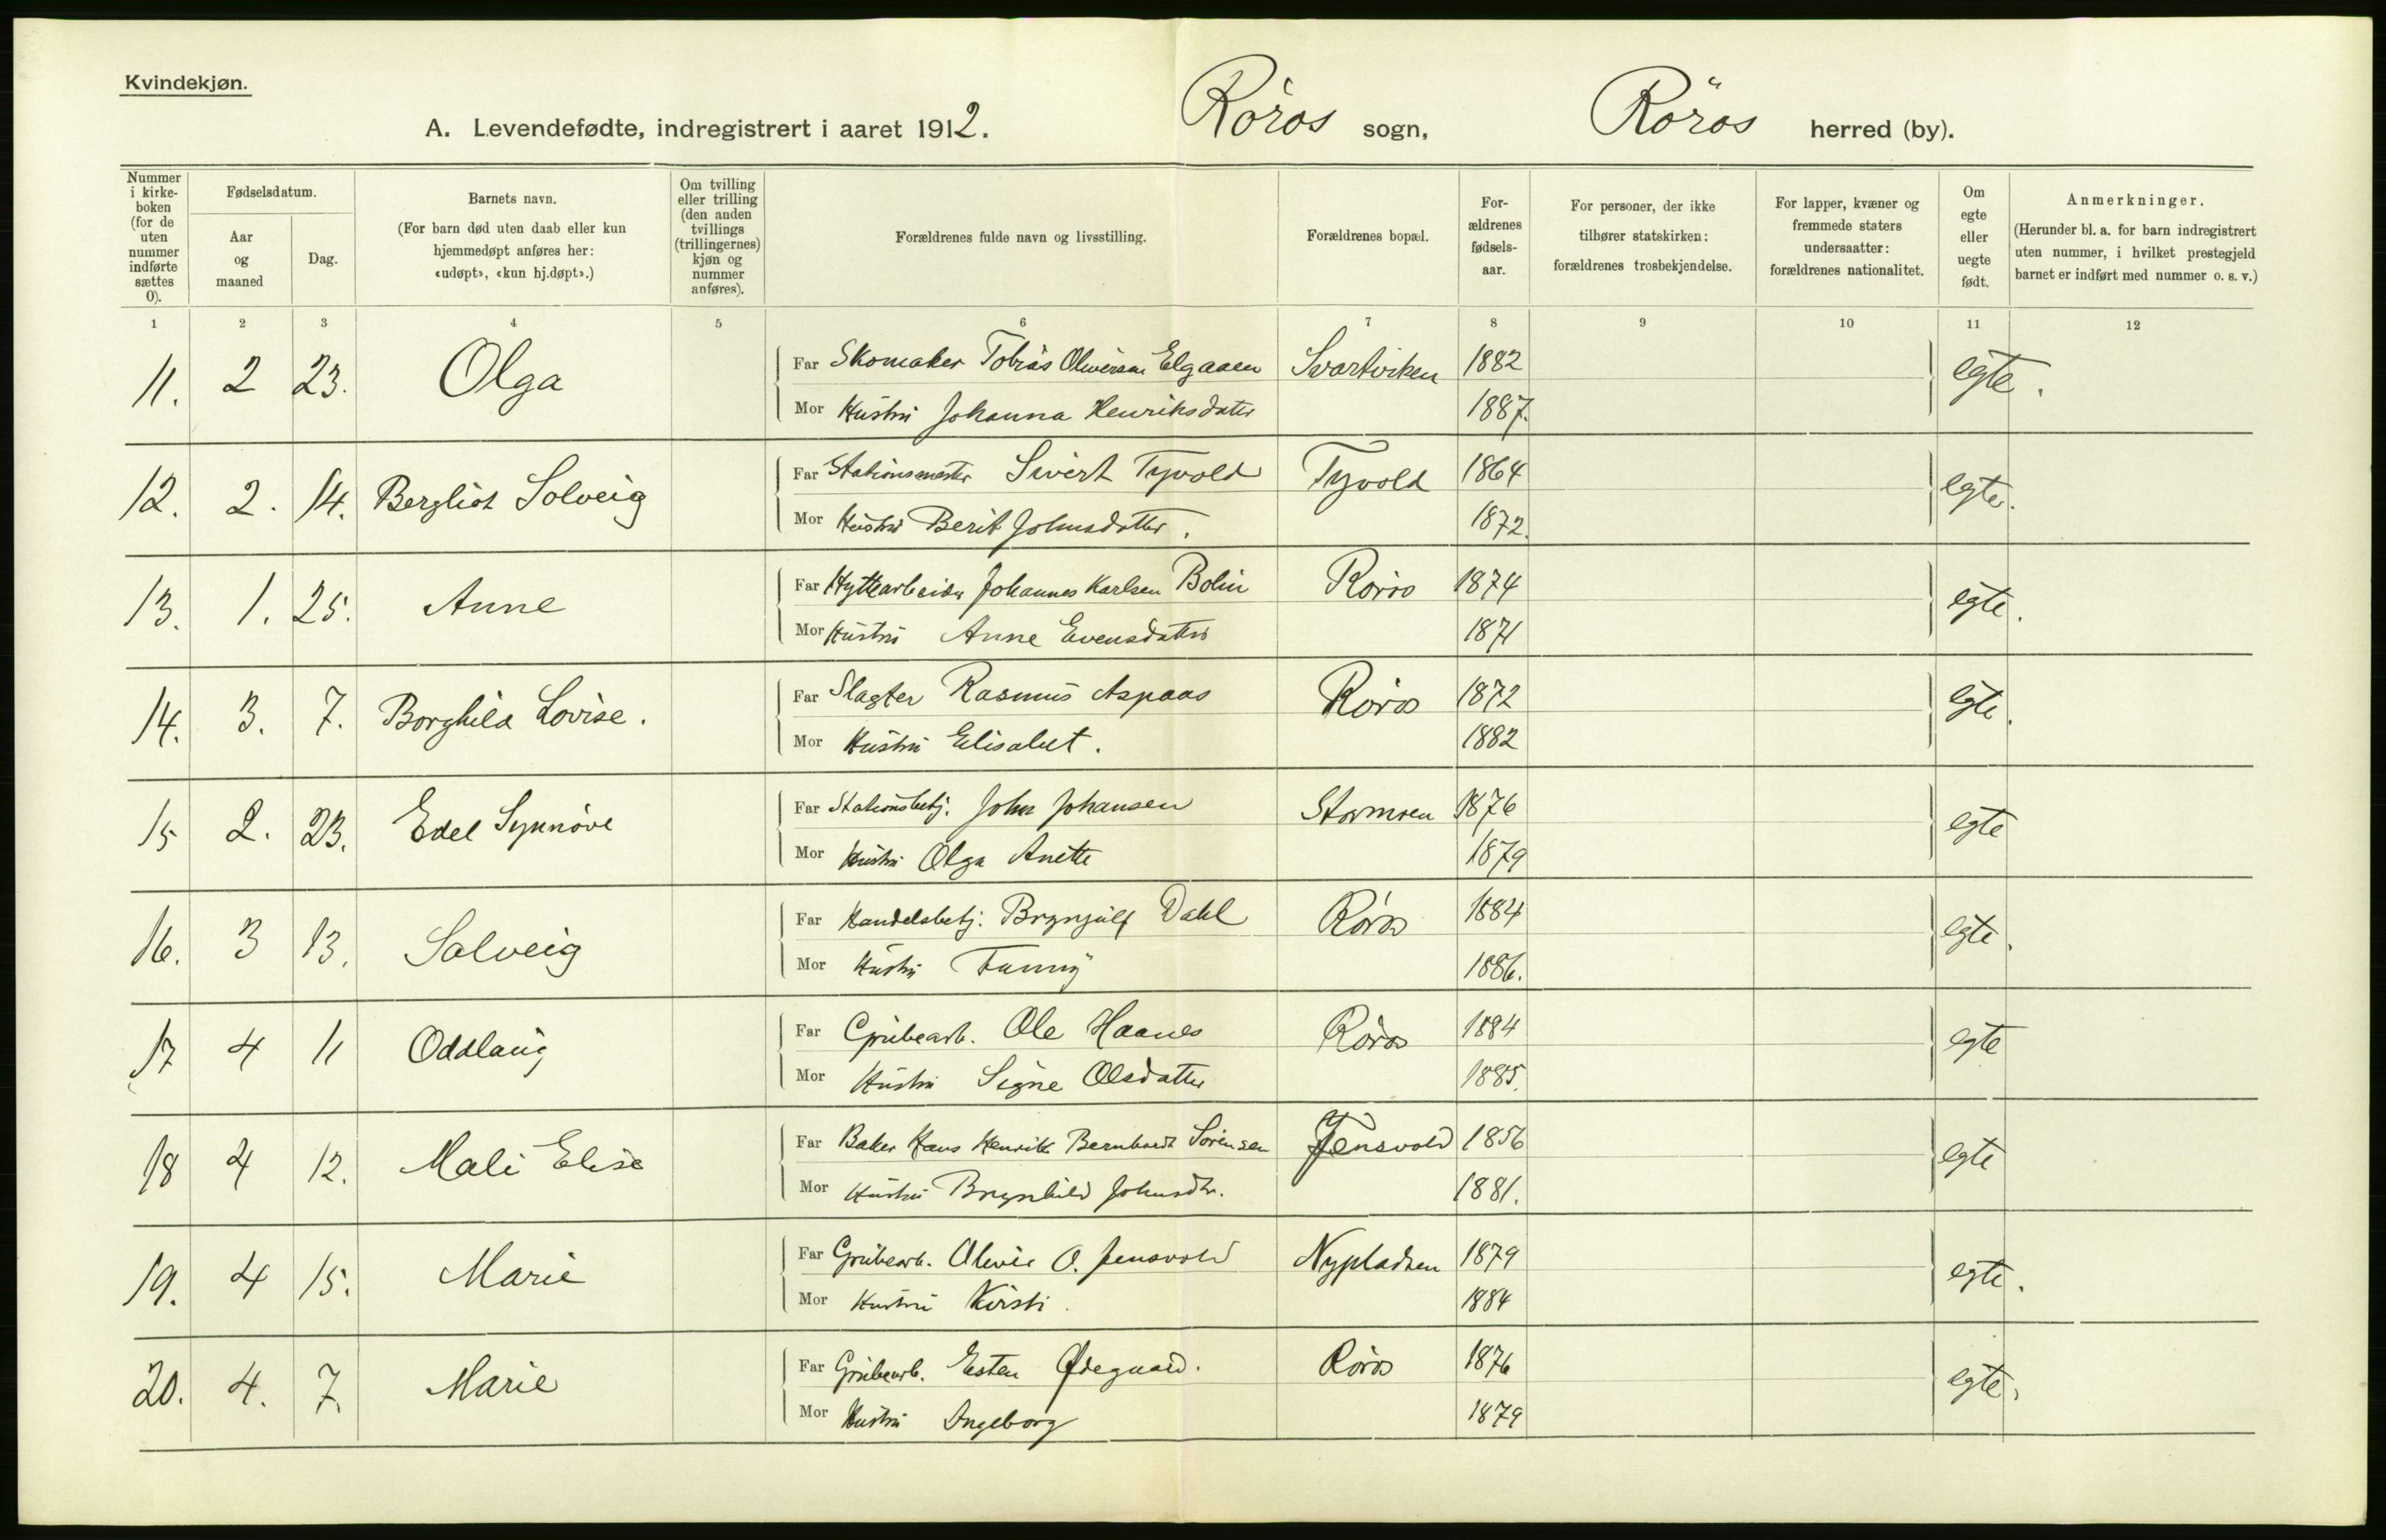 Kvindekjøn.
A. Levendefødte, indregistrert i aaret 1912. Röros sogn, Röros herred (by).
Nummer i kirkeboken (for de uten nummer indførte sættes 0).
Fødselsdatum.
Aar og maaned
Dag.
Barnets navn.
(For barn død uten daab eller kun hjemmedøpt anføres her: «udøpt», «kun hj.døpt».)
Om tvilling eller trilling (den anden tvillings (trillingernes) kjøn og nummer anføres).
Forældrenes fulde navn og livsstilling.
Forældrenes bopæl.
For-ældrenes fødsels-aar.
For personer, der ikke tilhører statskirken: forældrenes trosbekjendelse.
For lapper, kvæner og fremmede staters undersaatter: forældrenes nationalitet.
Om egte eller uegte født.
Anmerkninger.
(Herunder bl. a. for barn indregistrert uten nummer, i hvilket prestegjeld barnet er indført med nummer o. s. v.)
1 2 3 4 5 6 7 8 9 10 11 12
11. 2 23. Olga Far Skomaker Tobias Oliversen Elgaaen Svartviken 1882 egte.
Mor Hustru Johanna Henriksdatter 1887.
12. 2. 14. Bergliot Solveig Far Stationsmester Sivert Tyvold Tyvold 1864 egte.
Mor Hustru Berit Johnsdatter. 1872.
13. 1. 25. Anne Far Hyttearbeider Johannes Karlsen Bolin Röros 1874 egte.
Mor Hustru Anne Evensdatter 1871
14. 3. 7. Borghild Lovise. Far Slagter Rasmus Aspaas Röros 1872 egte.
Mor Hustru Elisabet. 1882
15 2. 23. Edel Synnöve Far Stationsbetj. John Johansen Stormoen 1876 egte
Mor Hustru Olga Anette 1879
16. 3 13. Solveig Far Handelsbetj. Brynjulf Dahl Röros 1884 egte.
Mor Hustru Fanny 1886.
17 4 11 Oddlaug Far Grubearb. Ole Haanes Röros 1884 egte
Mor Hustru Signe Olsdatter 1885.
18 4 12. Mali Elise Far Baker Hans Henrik Bernhardt Sörensen Jensvold 1856 egte
Mor Hustru Brynhild Johnsdtr. 1881.
19. 4 15. Marie Far Grubearb. Oliver O. Jensvold Nypladsen 1879 egte.
Mor Hustru Kirsti. 1884
20. 4. 7. Marie Far Grubearb. Esten Ødegaard. Röros 1876 egte.
Mor Hustru Ingeborg 1879